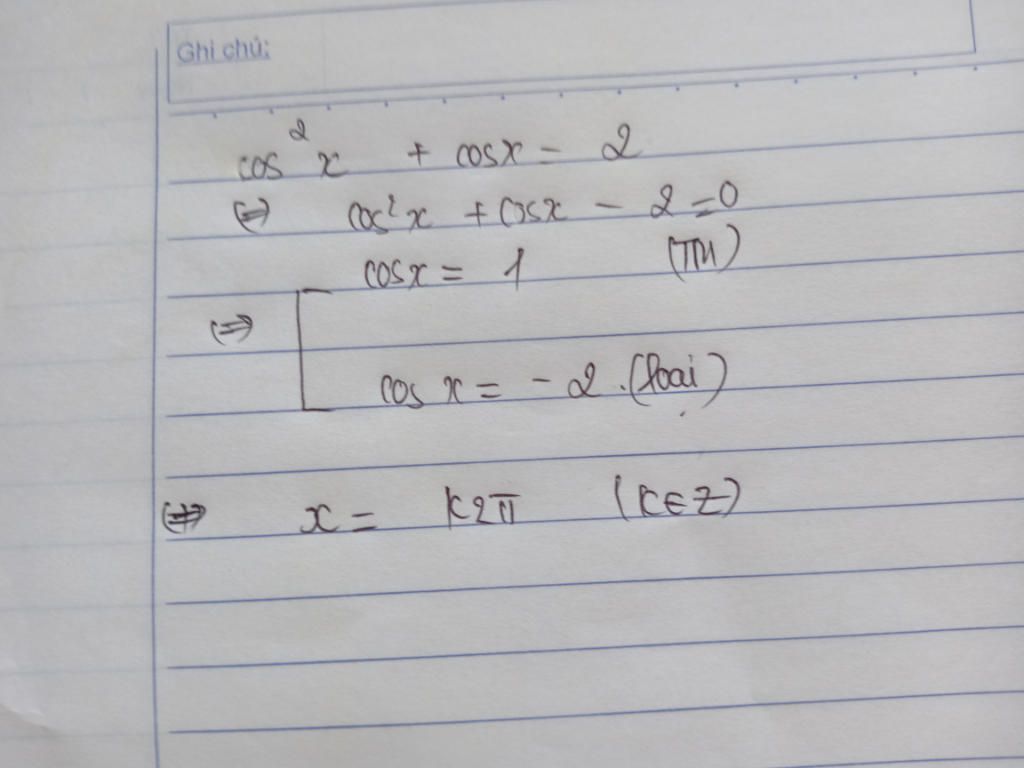 Ghi chú:
cos²x + cosx = 2
⇔ cos²x + cosx - 2 = 0
cosx = 1 (TM)
⇔
cos x = -2 . (loại)
⇔ x = k2π (k∈Z)